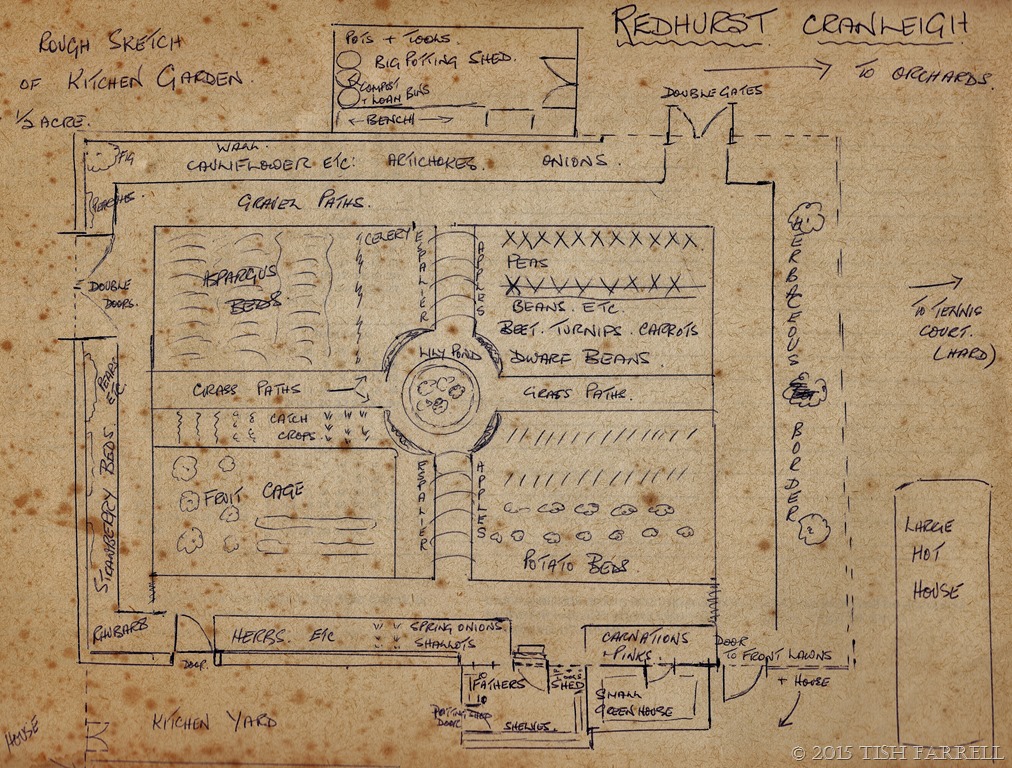 ROUGH SKETCH
OF KITCHEN GARDEN.
1/2 ACRE.
REDHURST CRANLEIGH
TO ORCHARDS.
POTS + TOOLS.
BIG POTTING SHED.
COMPOST
+ LOAM BINS
BENCH
DOUBLE GATES
WALL.
CAULIFLOWER ETC: ARTICHOKES. ONIONS.
FIG
PEACHES.
GRAVEL PATHS.
CELERY
ASPARGUS
BEDS
ESPALIER
APPLES
PEAS
BEANS. ETC.
BEET. TURNIPS. CARROTS
DWARF BEANS.
HERBACEOUS BORDER
DOUBLE
DOORS.
TO TENNIS
COURT.
(HARD)
LILY POND
GRASS PATHS
GRASS PATHS.
PEARS
ETC
STRAWBERRY BEDS.
CATCH
CROPS.
FRUIT CAGE
ESPALIER
APPLES
POTATO BEDS.
LARGE
HOT
HOUSE
RHUBARB
DOOR.
HERBS. ETC
SPRING ONIONS
SHALLOTS
CARNATIONS
+ PINKS.
DOOR
TO FRONT LAWNS
+ HOUSE
FATHERS
TOOLS
SHED
POTTING SHED
DOOR
SHELVES.
SMALL
GREENHOUSE
HOUSE
KITCHEN YARD
© 2015 TISH FARRELL